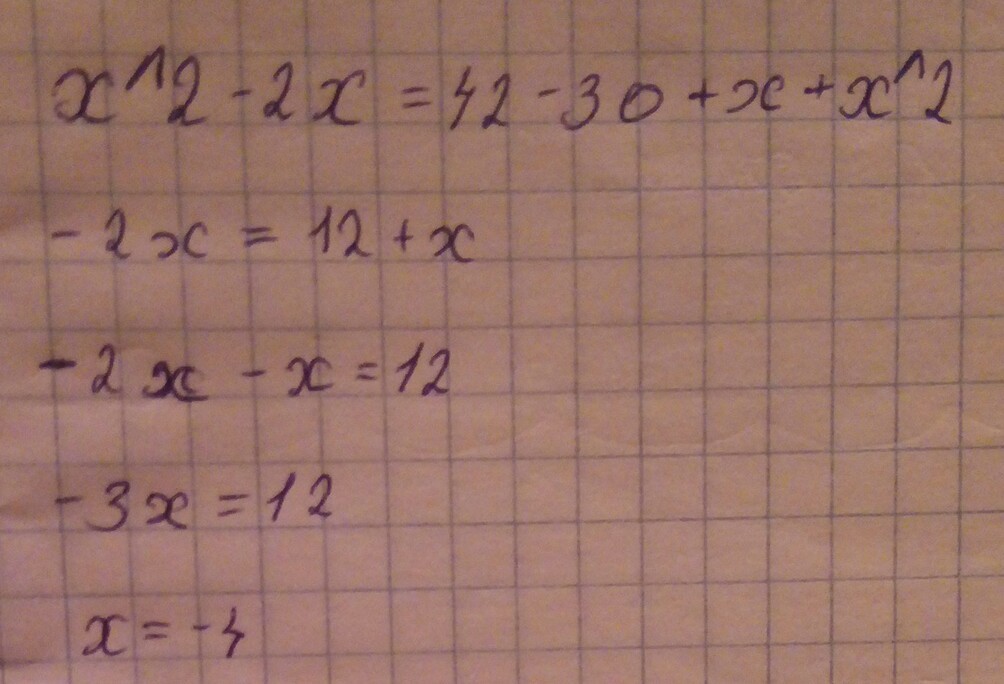 x^2 - 2x = 42 - 30 + x + x^2
- 2x = 12 + x
- 2x - x = 12
- 3x = 12
x = - 4